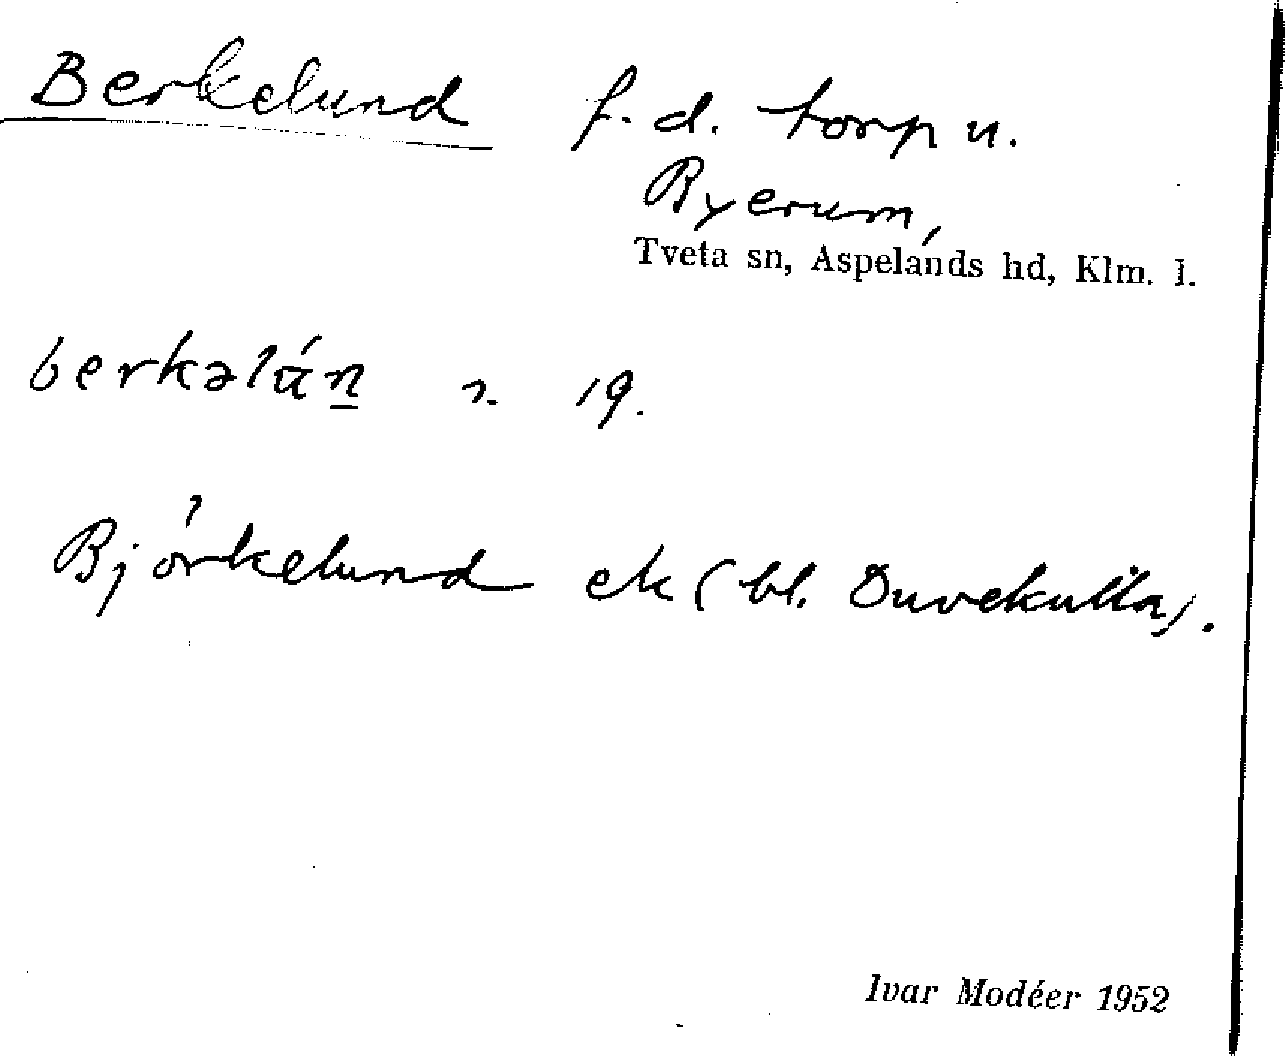 Berkelund f. d. torp u.
Byerum,
Tveta sn, Aspelands hd, Klm. l.
berkəlún 2. 19.
Björkelund ek (bl. Duvekulla).
Ivar Modéer 1952